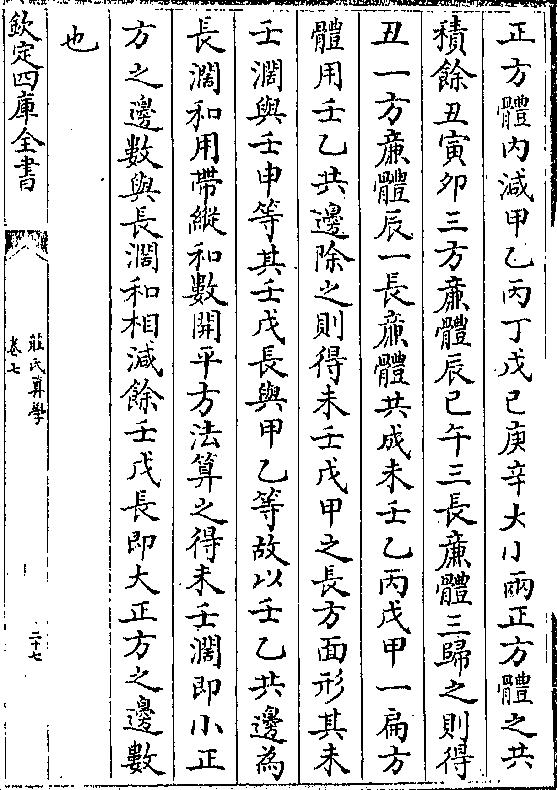 正方體內減甲乙丙丁戊己庚辛大小兩正方體之共
積餘丑寅卯三方亷體辰巳午三長亷體三歸之則得
丑一方亷體辰一長亷體共成未壬乙丙戊甲一扁方
體用壬乙共邊除之則得未壬戊甲之長方面形其未
壬濶與壬申等其壬戊長與甲乙等故以壬乙共邊為
長濶和用帶縱和數開平方法算之得未壬濶即小正
方之邊數與長濶和相減餘壬戊長即大正方之邊數
也
欽定四庫全書
莊氏算學
卷七
二十七